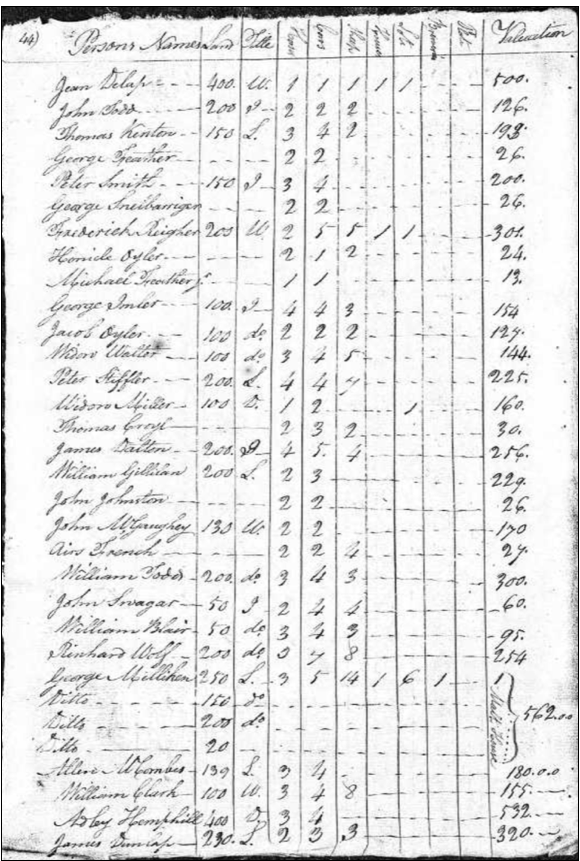 44) Persons Names Land Title Horses Cows Sheep Valuation
Jean Delap 400. W. 1 1 1 1 1 500.
John Todd 200 I 2 2 2 126.
Thomas Kenton 150 L. 3 4 2 193.
George Feather 2 2 26.
Peter Smith 150 I 3 4 200.
George 2 2 26.
Frederick Reigher 200 W. 2 5 5 1 1 301.
Oyler 2 1 2 24.
Michael Feather Jr. 1 1 13.
George Imler 100. I 4 4 3 154
Jacob Oyler 100 do 2 2 2 127.
Widow Walter 100 do 3 4 5 144.
Peter Stiffler 200. L 4 4 7 225.
Widow Miller 100 D. 1 2 1 160.
Thomas Croyl 2 3 2 30.
James Dalton 200. I 4 5. 4 256.
William Gillilan 200 L. 2 3 229.
John Johnston 2 2 26.
John McGaughey 130 W. 2 2 170
Airs French 2 2 4 27
William Todd 200. do 3 4 3 300.
John Swagar 50 I 2 4 4 60.
William Blair 50 do 3 4 3 95.
Rinhard Wolf 200 do 7 8 254
George Milliken 250 L. 3 5 14 1 6 1 1
Ditto 150 do
Ditto 200 do 562.00
Ditto 20
Allen McCombes 139 L. 3 4 180.0.0
William Clark 100 W. 3 4 8 155.
Hemphill 400 D. 3 4 532
James Dunlap 230. L. 2 3 3 320.